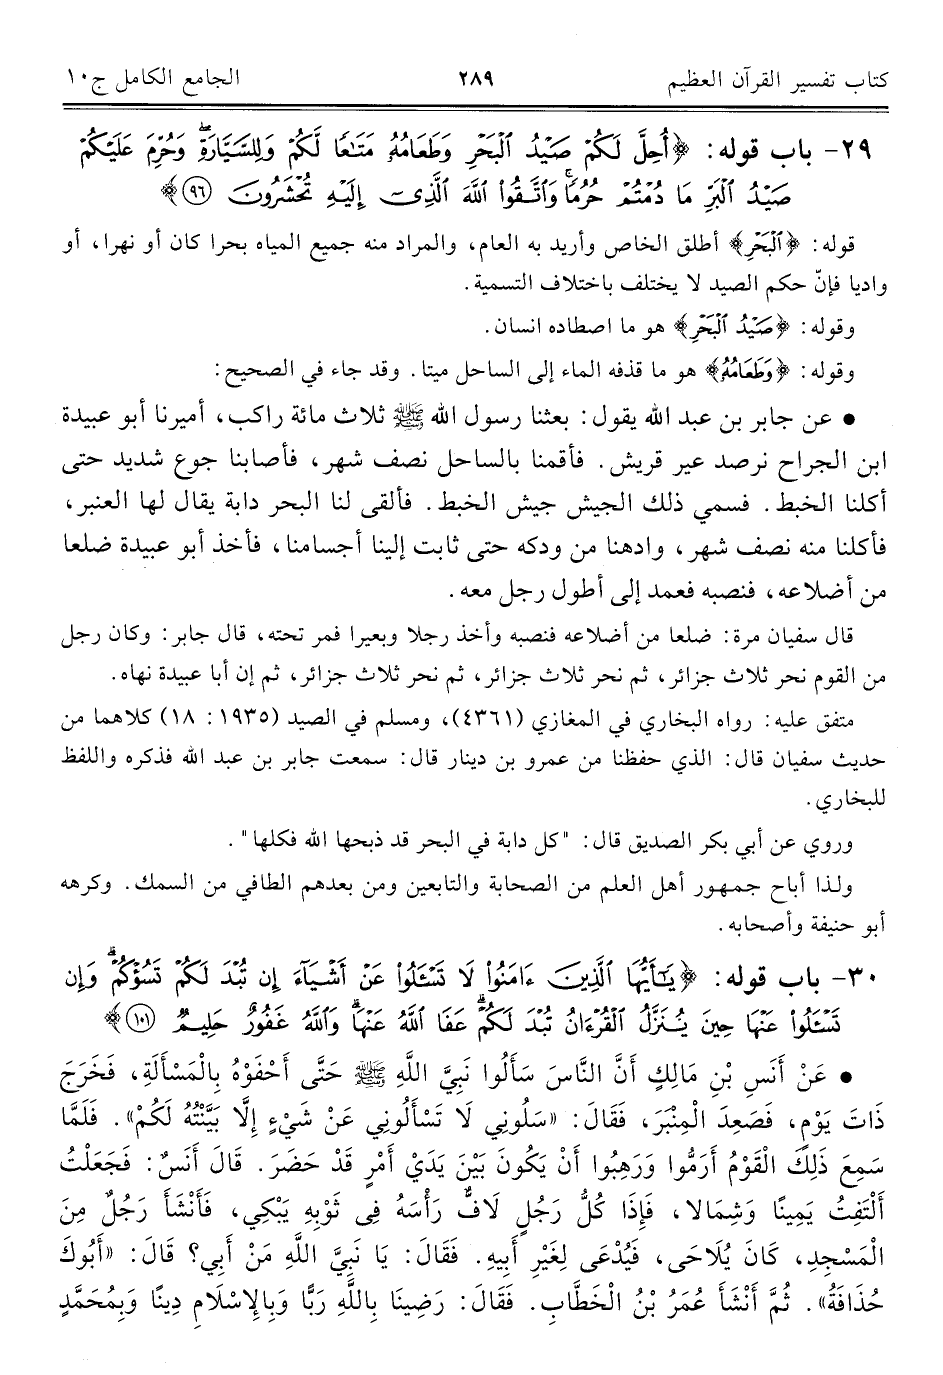 كتاب تفسير القرآن العظيم ٢٨٩ الجامع الكامل ج١٠
٢٩- باب قوله: ﴿أُحِلَّ لَكُمْ صَيْدُ ٱلْبَحْرِ وَطَعَامُهُۥ مَتَٰعًا لَّكُمْ وَلِلسَّيَّارَةِۖ وَحُرِّمَ عَلَيْكُمْ
صَيْدُ ٱلْبَرِّ مَا دُمْتُمْ حُرُمًاۗ وَٱتَّقُوا۟ ٱللَّهَ ٱلَّذِىٓ إِلَيْهِ تُحْشَرُونَ (٩٦)﴾
قوله: ﴿ٱلْبَحْرِ﴾ أطلق الخاص وأريد به العام، والمراد منه جميع المياه بحرا كان أو نهرا، أو
واديا فإنّ حكم الصيد لا يختلف باختلاف التسمية.
وقوله: ﴿صَيْدُ ٱلْبَحْرِ﴾ هو ما اصطاده انسان.
وقوله: ﴿وَطَعَامُهُۥ﴾ هو ما قذفه الماء إلى الساحل ميتا. وقد جاء في الصحيح:
• عن جابر بن عبد الله يقول: بعثنا رسول الله ﷺ ثلاث مائة راكب، أميرنا أبو عبيدة
ابن الجراح نرصد عير قريش. فأقمنا بالساحل نصف شهر، فأصابنا جوع شديد حتى
أكلنا الخبط. فسمي ذلك الجيش جيش الخبط. فألقى لنا البحر دابة يقال لها العنبر،
فأكلنا منه نصف شهر، وادهنا من ودكه حتى ثابت إلينا أجسامنا، فأخذ أبو عبيدة ضلعا
من أضلاعه، فنصبه فعمد إلى أطول رجل معه.
قال سفيان مرة: ضلعا من أضلاعه فنصبه وأخذ رجلا وبعيرا فمر تحته، قال جابر: وكان رجل
من القوم نحر ثلاث جزائر، ثم نحر ثلاث جزائر، ثم نحر ثلاث جزائر، ثم إن أبا عبيدة نهاه.
متفق عليه: رواه البخاري في المغازي (٤٣٦١)، ومسلم في الصيد (١٩٣٥: ١٨) كلاهما من
حديث سفيان قال: الذي حفظنا من عمرو بن دينار قال: سمعت جابر بن عبد الله فذكره واللفظ
للبخاري.
وروي عن أبي بكر الصديق قال: "كل دابة في البحر قد ذبحها الله فكلها".
ولذا أباح جمهور أهل العلم من الصحابة والتابعين ومن بعدهم الطافي من السمك. وكرهه
أبو حنيفة وأصحابه.
٣٠- باب قوله: ﴿يَٰٓأَيُّهَا ٱلَّذِينَ ءَامَنُوا۟ لَا تَسْـَٔلُوا۟ عَنْ أَشْيَآءَ إِن تُبْدَ لَكُمْ تَسُؤْكُمْۖ وَإِن
تَسْـَٔلُوا۟ عَنْهَا حِينَ يُنَزَّلُ ٱلْقُرْءَانُ تُبْدَ لَكُمْۗ عَفَا ٱللَّهُ عَنْهَاۗ وَٱللَّهُ غَفُورٌ حَلِيمٌ (١٠١)﴾
• عَنْ أَنَسِ بْنِ مَالِكٍ أَنَّ النَّاسَ سَأَلُوا نَبِيَّ اللَّهِ ﷺ حَتَّى أَحْفَوْهُ بِالْمَسْأَلَةِ، فَخَرَجَ
ذَاتَ يَوْمٍ، فَصَعِدَ الْمِنْبَرَ، فَقَالَ: «سَلُونِي لَا تَسْأَلُونِي عَنْ شَيْءٍ إِلَّا بَيَّنْتُهُ لَكُمْ». فَلَمَّا
سَمِعَ ذَلِكَ الْقَوْمُ أَرَمُّوا وَرَهِبُوا أَنْ يَكُونَ بَيْنَ يَدَيْ أَمْرٍ قَدْ حَضَرَ. قَالَ أَنَسٌ: فَجَعَلْتُ
أَلْتَفِتُ يَمِينًا وَشِمَالا، فَإِذَا كُلُّ رَجُلٍ لَافٌّ رَأْسَهُ فِي ثَوْبِهِ يَبْكِي، فَأَنْشَأَ رَجُلٌ مِنَ
الْمَسْجِدِ، كَانَ يُلَاحَى، فَيُدْعَى لِغَيْرِ أَبِيهِ. فَقَالَ: يَا نَبِيَّ اللَّهِ مَنْ أَبِي؟ قَالَ: «أَبُوكَ
حُذَافَةُ». ثُمَّ أَنْشَأَ عُمَرُ بْنُ الْخَطَّابِ. فَقَالَ: رَضِينَا بِاللَّهِ رَبًّا وَبِالإِسْلَامِ دِينًا وَبِمُحَمَّدٍ